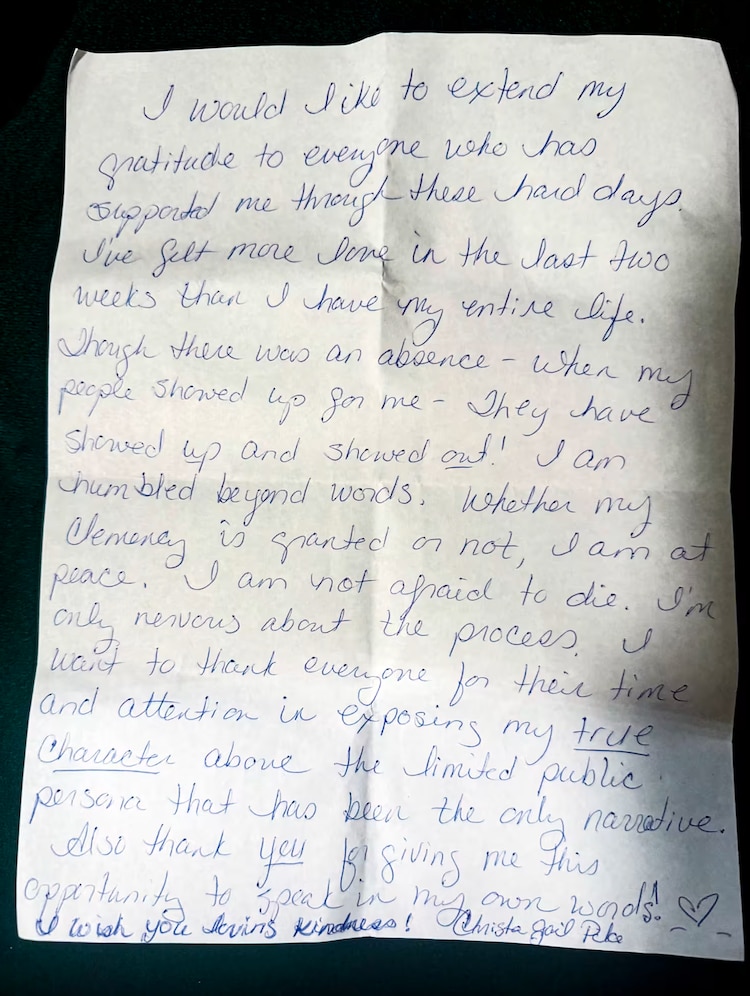 I would like to extend my
gratitude to everyone who has
supported me through these hard days.
I've felt more love in the last two
weeks than I have my entire life.
Though there was an absence - when my
people showed up for me - They have
showed up and showed out! I am
humbled beyond words. Whether my
Clemency is granted or not, I am at
peace. I am not afraid to die. I'm
only nervous about the process. I
want to thank everyone for their time
and attention in exposing my true
character above the limited public
persona that has been the only narrative.
Also thank you for giving me this
opportunity to speak in my own words!
I wish you loving kindness! Christa Gail Pike